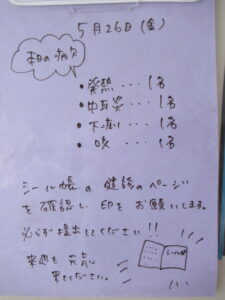 5月26日(金)
本日の病欠
・発熱・・・1名
・中耳炎・・・1名
・下痢・・・1名
・咳・・・1名
シール帳の健診のページ
を確認し印をお願いします。
必らず提出してください!!
来週も元気に
来てください。
シール帳